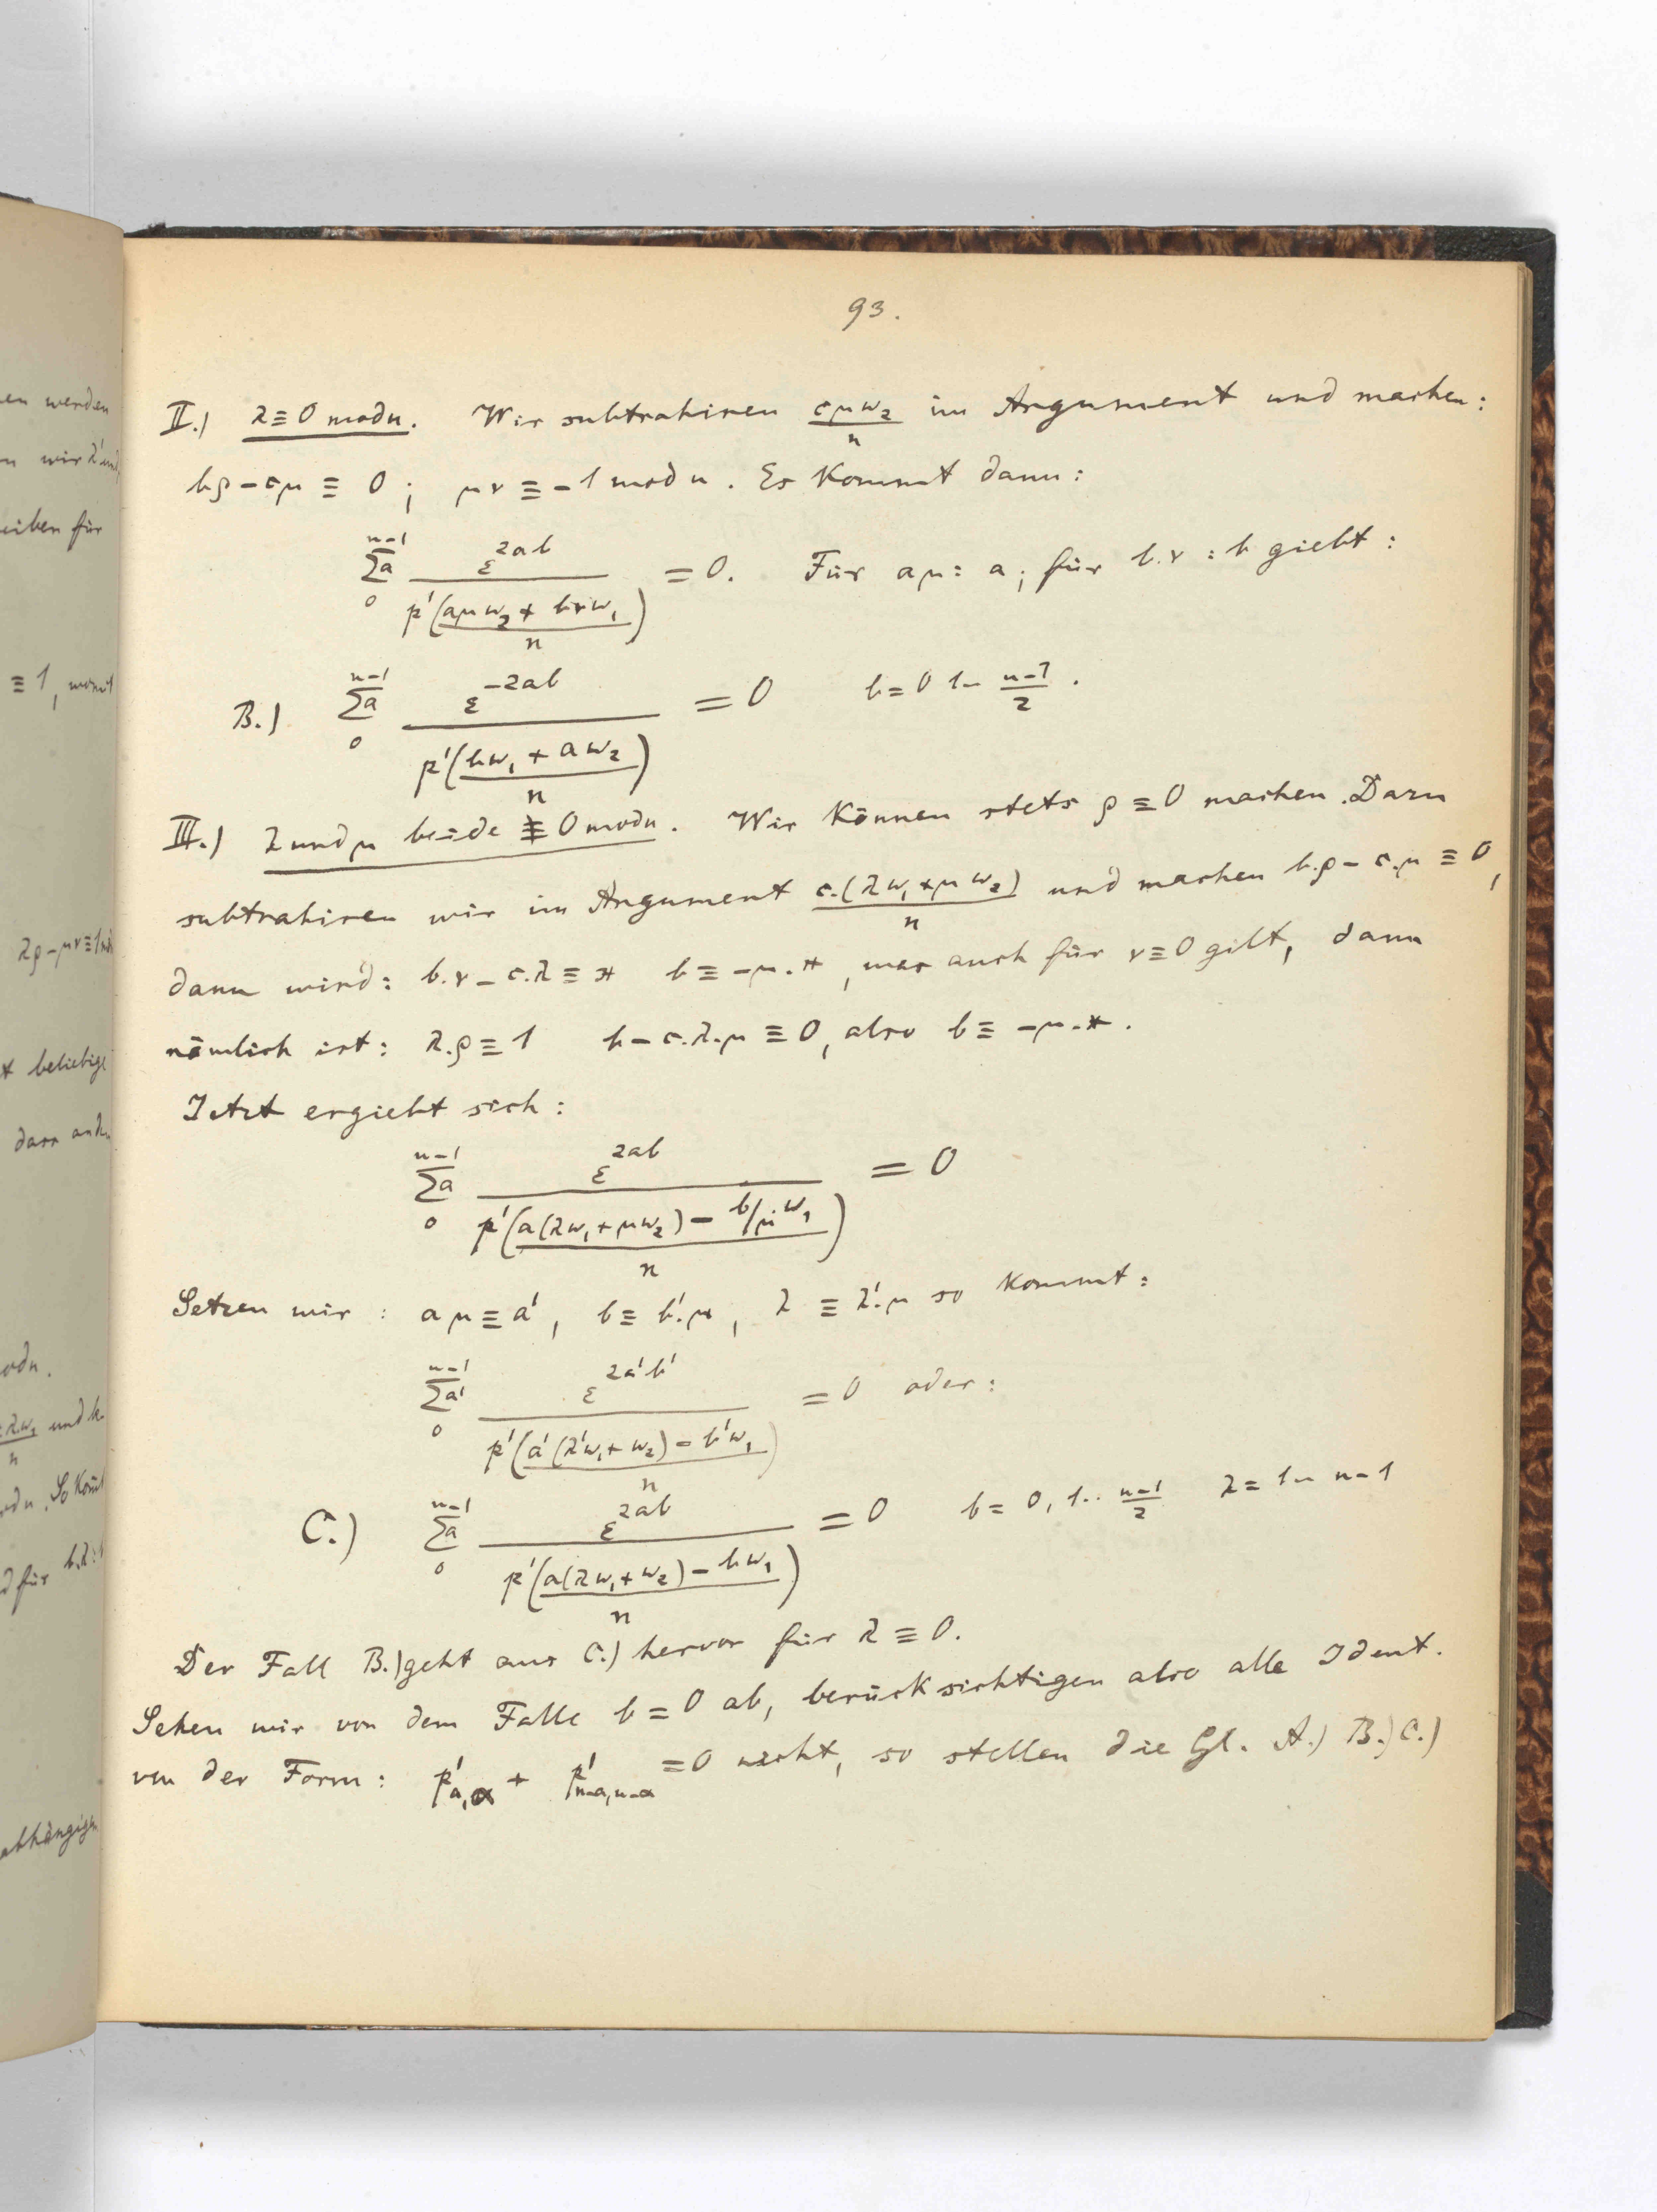 93.
II.) λ ≡ 0 mod n. Wir subtrahiren cμw₂/n im Argument und machen:
bρ − cμ ≡ 0 ; μν ≡ −1 mod n. Es kommt dann:
∑a (0 … n−1) ε^{2ab} / p'((aμw₂ + bνw₁)/n) = 0. Für aμ : a ; für b.ν : b giebt :
B.) ∑a (0 … n−1) ε^{−2ab} / p'((bw₁ + aw₂)/n) = 0 b = 0 1 .. (n−1)/2 .
III.) λ und μ beide ≢ 0 mod n. Wir können stets ρ ≡ 0 machen. Dazu
subtrahiren wir im Argument c.(λw₁ + μw₂)/n und machen b.ρ − c.μ ≡ 0,
dann wird: b.ν − c.λ ≡ * b ≡ −μ.* , was auch für ν ≡ 0 gilt, dann
nämlich ist: λ.ρ ≡ 1 b − c.λ.μ ≡ 0, also b ≡ −μ.* .
Jetzt ergiebt sich :
∑a (0 … n−1) ε^{2ab} / p'((a(λw₁ + μw₂) − b/μ w₁)/n) = 0
Setzen wir : aμ ≡ a', b ≡ b'.μ, λ ≡ λ'.μ so kommt :
∑a' (0 … n−1) ε^{2a'b'} / p'((a'(λ'w₁ + w₂) − b'w₁)/n) = 0 oder :
C.) ∑a (0 … n−1) ε^{2ab} / p'((a(λw₁ + w₂) − bw₁)/n) = 0 b = 0, 1 .. (n−1)/2 λ = 1 .. n−1
Der Fall B.) geht aus C.) hervor für λ ≡ 0.
Sehen wir von dem Falle b = 0 ab, berücksichtigen also alle Ident.
von der Form : p'_{a,α} + p'_{n−a,n−α} = 0 nicht, so stellen die Gl. A.) B.) C.)